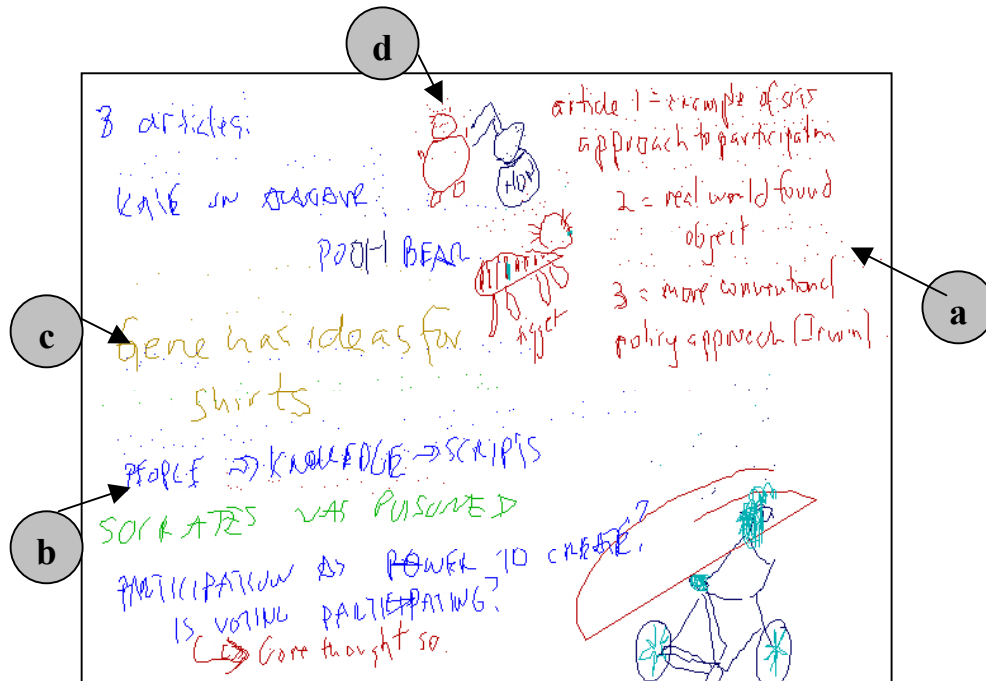 d
3 articles:
article 1 = example of
approach to participation
ON
2 = real world found
object
POOH BEAR
a
3 = more conventional
policy approach (Irwin)
c
Gene has ideas for
shirts
PEOPLE ⇒ KNOWLEDGE ⇒ SCRIPTS
b
SOCRATES WAS POISONED
PARTICIPATION AS POWER TO CREATE?
IS VOTING PARTICIPATING?
Gore thought so.